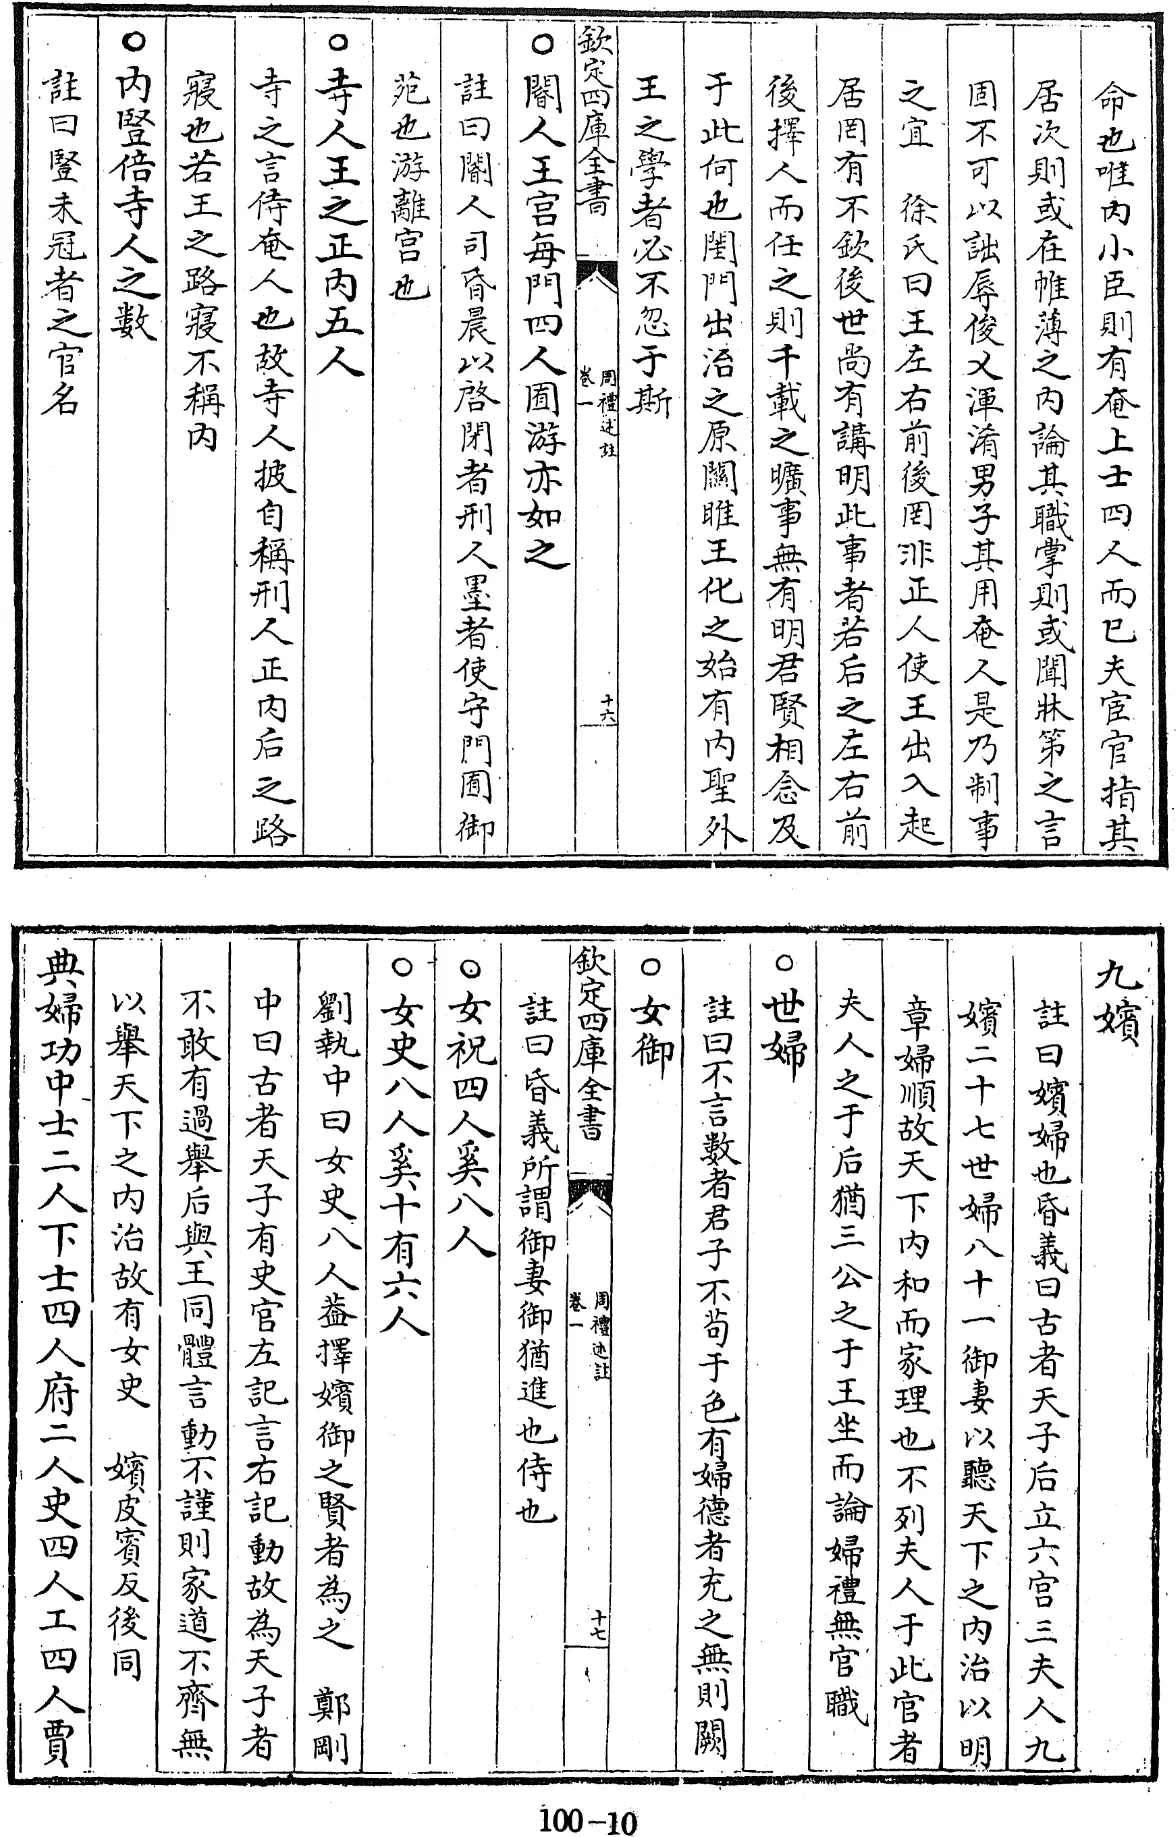 命也唯内小臣則有奄上士四人而已夫宦官指其
居次則或在帷薄之内論其職掌則或闈牀第之言
固不可以詘辱俊乂渾淆男子其用奄人是乃制事
之宜　徐氏曰王左右前後罔非正人使王出入起
居罔有不欽後世尚有講明此事者若后之左右前
後擇人而任之則千載之曠事無有明君賢相念及
于此何也閨門出治之原關雎王化之始有内聖外
王之學者必不忽于斯
欽定四庫全書
周禮述註
卷一
十六
○閽人王宫每門四人囿游亦如之
註曰閽人司昏晨以啓閉者刑人墨者使守門囿御
苑也游離宫也
○寺人王之正内五人
寺之言侍奄人也故寺人披自稱刑人正内后之路
寢也若王之路寢不稱内
○内豎倍寺人之數
註曰豎未冠者之官名
九嬪
註曰嬪婦也昏義曰古者天子后立六宫三夫人九
嬪二十七世婦八十一御妻以聽天下之内治以明
章婦順故天下内和而家理也不列夫人于此官者
夫人之于后猶三公之于王坐而論婦禮無官職
○世婦
註曰不言數者君子不苟于色有婦德者充之無則闕
○女御
欽定四庫全書
周禮述註
卷一
十七
註曰昏義所謂御妻御猶進也侍也
○女祝四人奚八人
○女史八人奚十有六人
劉執中曰女史八人蓋擇嬪御之賢者為之　鄭剛
中曰古者天子有史官左記言右記動故為天子者
不敢有過舉后與王同體言動不謹則家道不齊無
以舉天下之内治故有女史　嬪皮賓反後同
典婦功中士二人下士四人府二人史四人工四人賈
100-10